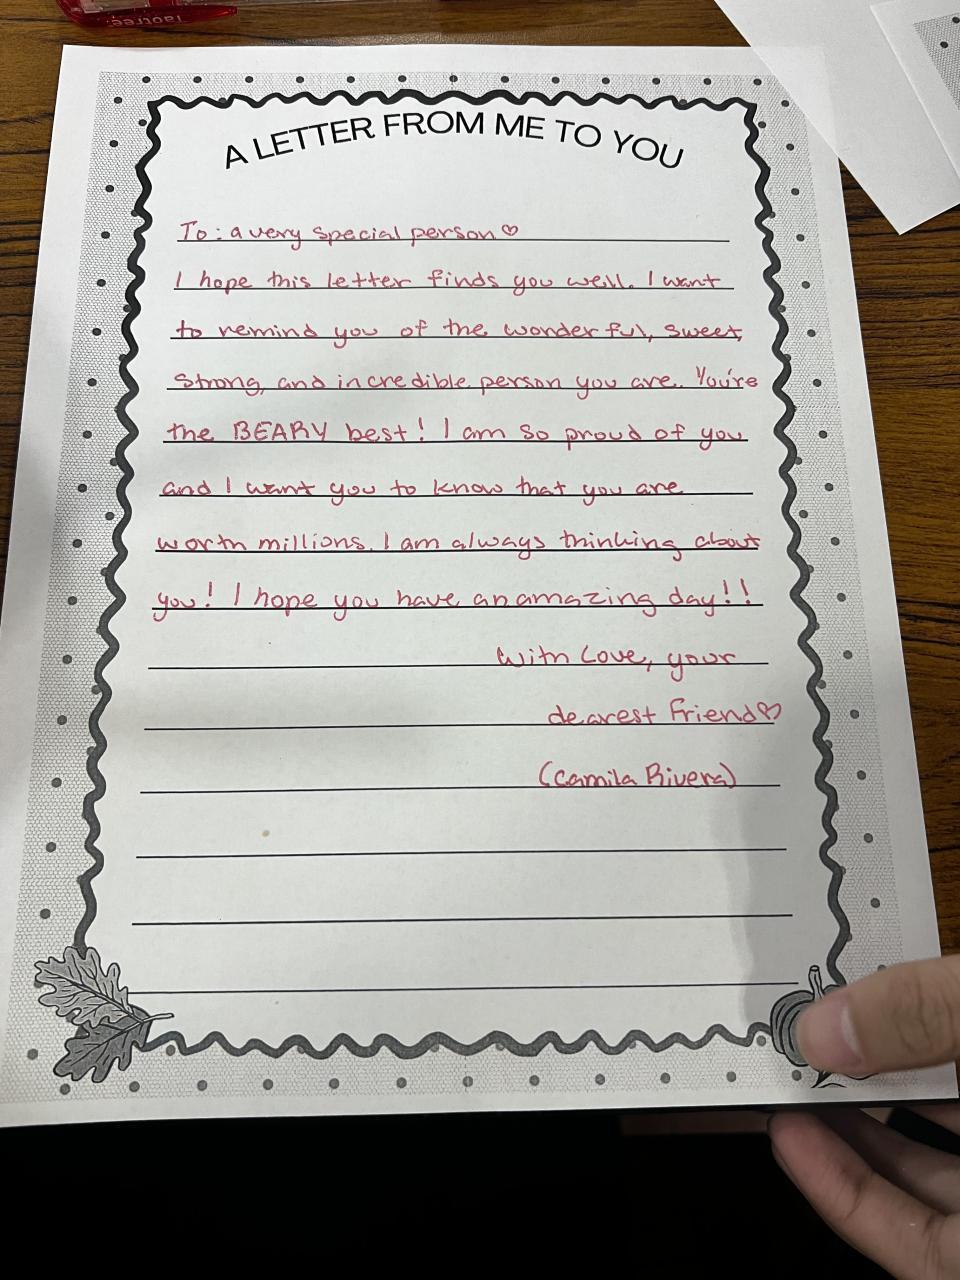 Taotree
A LETTER FROM ME TO YOU
To: a very special person♡
I hope this letter finds you well. I want
to remind you of the wonderful, sweet,
strong, and incredible person you are. You're
the BEARY best! I am so proud of you
and I want you to know that you are
worth millions. I am always thinking about
you! I hope you have an amazing day!!
With Love, your
dearest Friend♡
(Camila Rivera)